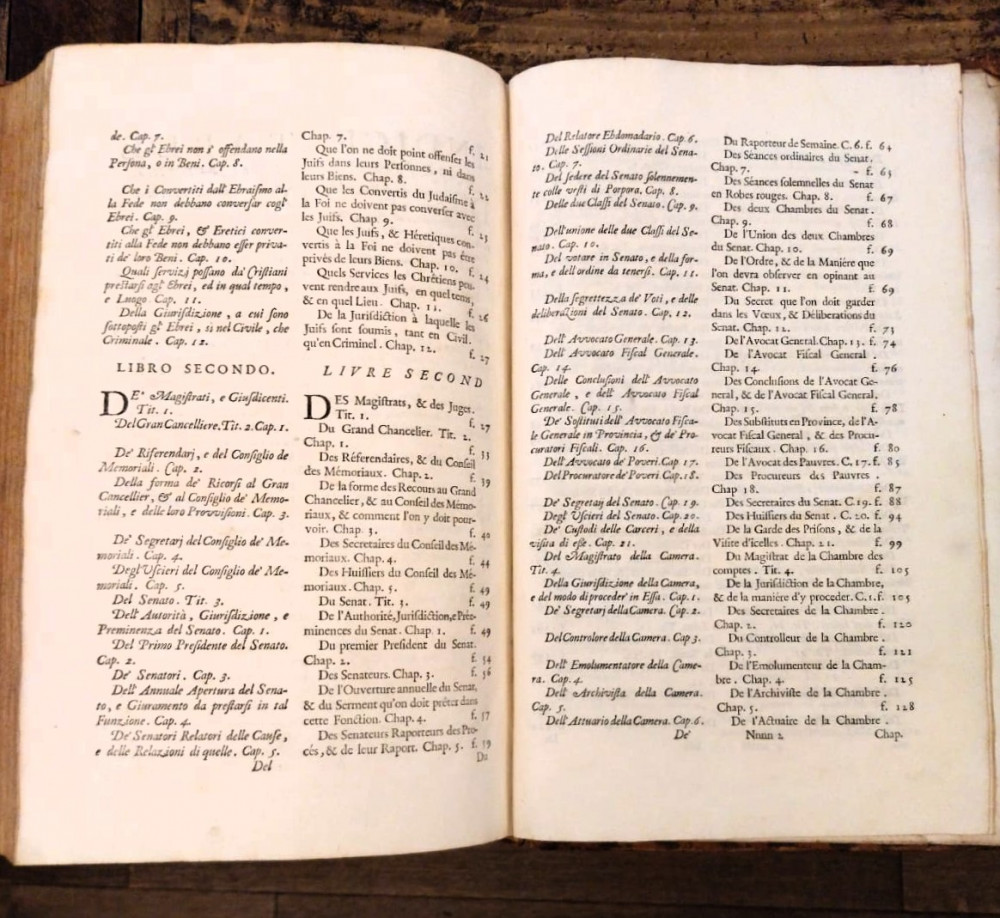 de. Cap. 7.
Che gl' Ebrei non s' offendano nella
Persona, o in Beni. Cap. 8.
Che i Convertiti dall' Ebraismo al-
la Fede non debbano conversar cogl'
Ebrei. Cap. 9.
Che gl' Ebrei, & Eretici conver-
titi alla Fede non debbano esser priva-
ti de' loro Beni. Cap. 10.
Quali servizj possano da' Cristiani
prestarsi agl' Ebrei, ed in qual tempo,
e Luogo. Cap. 11.
Della Giurisdizione, a cui sono
sottoposti gl' Ebrei, sì nel Civile, che
Criminale. Cap. 12.
LIBRO SECONDO.
DE' Magistrati, e Giusdicenti.
Tit. 1.
Del Gran Cancelliere. Tit. 2. Cap. 1.
De' Riferendarj, e del Consiglio de'
Memoriali. Cap. 2.
Della forma de' Ricorsi al Gran
Cancellier, & al Consiglio de' Memo-
riali, e delle loro Provvisioni. Cap. 3.
De' Segretarj del Consiglio de' Me-
moriali. Cap. 4.
Degl' Uscieri del Consiglio de' Me-
moriali. Cap. 5.
Del Senato. Tit. 3.
Dell' Autorità, Giurisdizione, e
Preminenza del Senato. Cap. 1.
Del Primo Presidente del Senato.
Cap. 2.
De' Senatori. Cap. 3.
Dell' Annuale Apertura del Sena-
to, e Giuramento da prestarsi in tal
Funzione. Cap. 4.
De' Senatori Relatori delle Cause,
e delle Relazioni di quelle. Cap. 5.
Del
Chap. 7. f. 21
Que l'on ne doit point offenser les
Juifs dans leurs Personnes, ni dans
leurs Biens. Chap. 8. f. 22
Que les Convertis du Judaïsme à
la Foi ne doivent pas converser avec
les Juifs. Chap 9. f. 23
Que les Juifs, & Hérétiques con-
vertis à la Foi ne doivent pas être
privés de leurs Biens. Chap. 10. f. 24
Quels Services les Chrêtiens peu-
vent rendre aux Juifs, en quel tems,
& en quel Lieu. Chap. 11. f. 26
De la Jurisdiction à laquelle les
Juifs sont soumis, tant en Civil,
qu'en Criminel. Chap. 12. f. 27
LIVRE SECOND
DES Magistrats, & des Juges.
Tit. 1. f. 27
Du Grand Chancelier. Tit. 2.
Chap. 1. f. 33
Des Réferendaires, & du Conseil
des Mémoriaux. Chap. 2. f. 39
De la forme des Recours au Grand
Chancelier, & au Conseil des Mémo-
riaux, & comment l'on y doit pour-
voir. Chap. 3. f. 40
Des Secretaires du Conseil des Mé-
moriaux. Chap. 4. f. 44
Des Huissiers du Conseil des Mé-
moriaux. Chap. 5. f. 49
Du Senat. Tit. 3. f. 49
De l'Authorité, Jurisdiction, & Pré-
minences du Senat. Chap. 1. f. 49
Du premier President du Senat.
Chap. 2. f. 54
Des Senateurs. Chap. 3. f. 56
De l'Ouverture annuelle du Senat,
& du Serment qu'on doit prêter dans
cette Fonction. Chap. 4. f. 57
Des Senateurs Raporteurs des Pro-
cés, & de leur Raport. Chap. 5. f. 59
Du
Del Relatore Ebdomadario. Cap. 6.
Delle Sessioni Ordinarie del Sena-
to. Cap. 7.
Del sedere del Senato solennemen-
te colle vesti di Porpora. Cap. 8.
Delle due Classi del Senato. Cap. 9.
Dell'unione delle due Classi del Se-
nato. Cap. 10.
Del votare in Senato, e della for-
ma, e dell'ordine da tenersi. Cap. 11.
Della segrettezza de' Voti, e delle
deliberazioni del Senato. Cap. 12.
Dell' Avvocato Generale. Cap. 13.
Dell' Avvocato Fiscal Generale.
Cap. 14
Delle Conclusioni dell' Avvocato
Generale, e dell' Avvocato Fiscal
Generale. Cap. 15.
De' Sostituti dell' Avvocato Fisca-
le Generale in Provincia, & de' Pro-
curatori Fiscali. Cap. 16.
Dell' Avvocato de' Poveri. Cap. 17.
Del Procuratore de' Poveri. Cap. 18.
De' Segretarj del Senato. Cap. 19.
Degl' Uscieri del Senato. Cap. 20.
De' Custodi delle Carceri, e della
visita di esse. Cap. 21.
Del Magistrato della Camera.
Tit. 4.
Della Giurisdizione della Camera,
e del modo di proceder' in Essa. Cap. 1.
De' Segretarj della Camera. Cap. 2.
Del Controlore della Camera. Cap 3.
Dell' Emolumentatore della Came-
ra. Cap. 4.
Dell' Archivista della Camera.
Cap. 5.
Dell' Attuario della Camera. Cap. 6.
De'
Du Raporteur de Semaine. C. 6. f. 64
Des Séances ordinaires du Senat.
Chap. 7. f. 65
Des Séances solemnelles du Senat
en Robes rouges. Chap. 8. f. 67
Des deux Chambres du Senat.
Chap. 9. f. 68
De l'Union des deux Chambres
du Senat. Chap. 10. f. 69
De l'Ordre, & de la Manière que
l'on devra observer en opinant au
Senat. Chap. 11. f. 69
Du Secret que l'on doit garder
dans les Vœux, & Déliberations du
Senat. Chap. 12. f. 73
De l'Avocat General. Chap. 13. f. 74
De l'Avocat Fiscal General.
Chap. 14 f. 76
Des Conclusions de l'Avocat Ge-
neral, & de l'Avocat Fiscal General.
Chap. 15. f. 78
Des Substituts en Province, de l'A-
vocat Fiscal General, & des Procu-
reurs Fiscaux. Chap. 16. f. 80
De l'Avocat des Pauvres. C. 17. f. 85
Des Procureurs des Pauvres.
Chap 18. f. 87
Des Secretaires du Senat. C 19. f. 88
Des Huissiers du Senat. C. 20. f. 94
De la Garde des Prisons, & de la
Visite d'icelles. Chap. 21. f. 99
Du Magistrat de la Chambre des
comptes. Tit. 4. f. 105
De la Jurisdiction de la Chambre,
& de la manière d'y proceder. C. 1. f. 105
Des Secretaires de la Chambre.
Chap. 2. f. 120
Du Controlleur de la Chambre.
Chap. 3. f. 121
De l'Emolumenteur de la Cham-
bre. Chap. 4. f. 125
De l'Archiviste de la Chambre.
Chap. 5. f. 128
De l'Actuaire de la Chambre.
Nnnn 2 Chap.